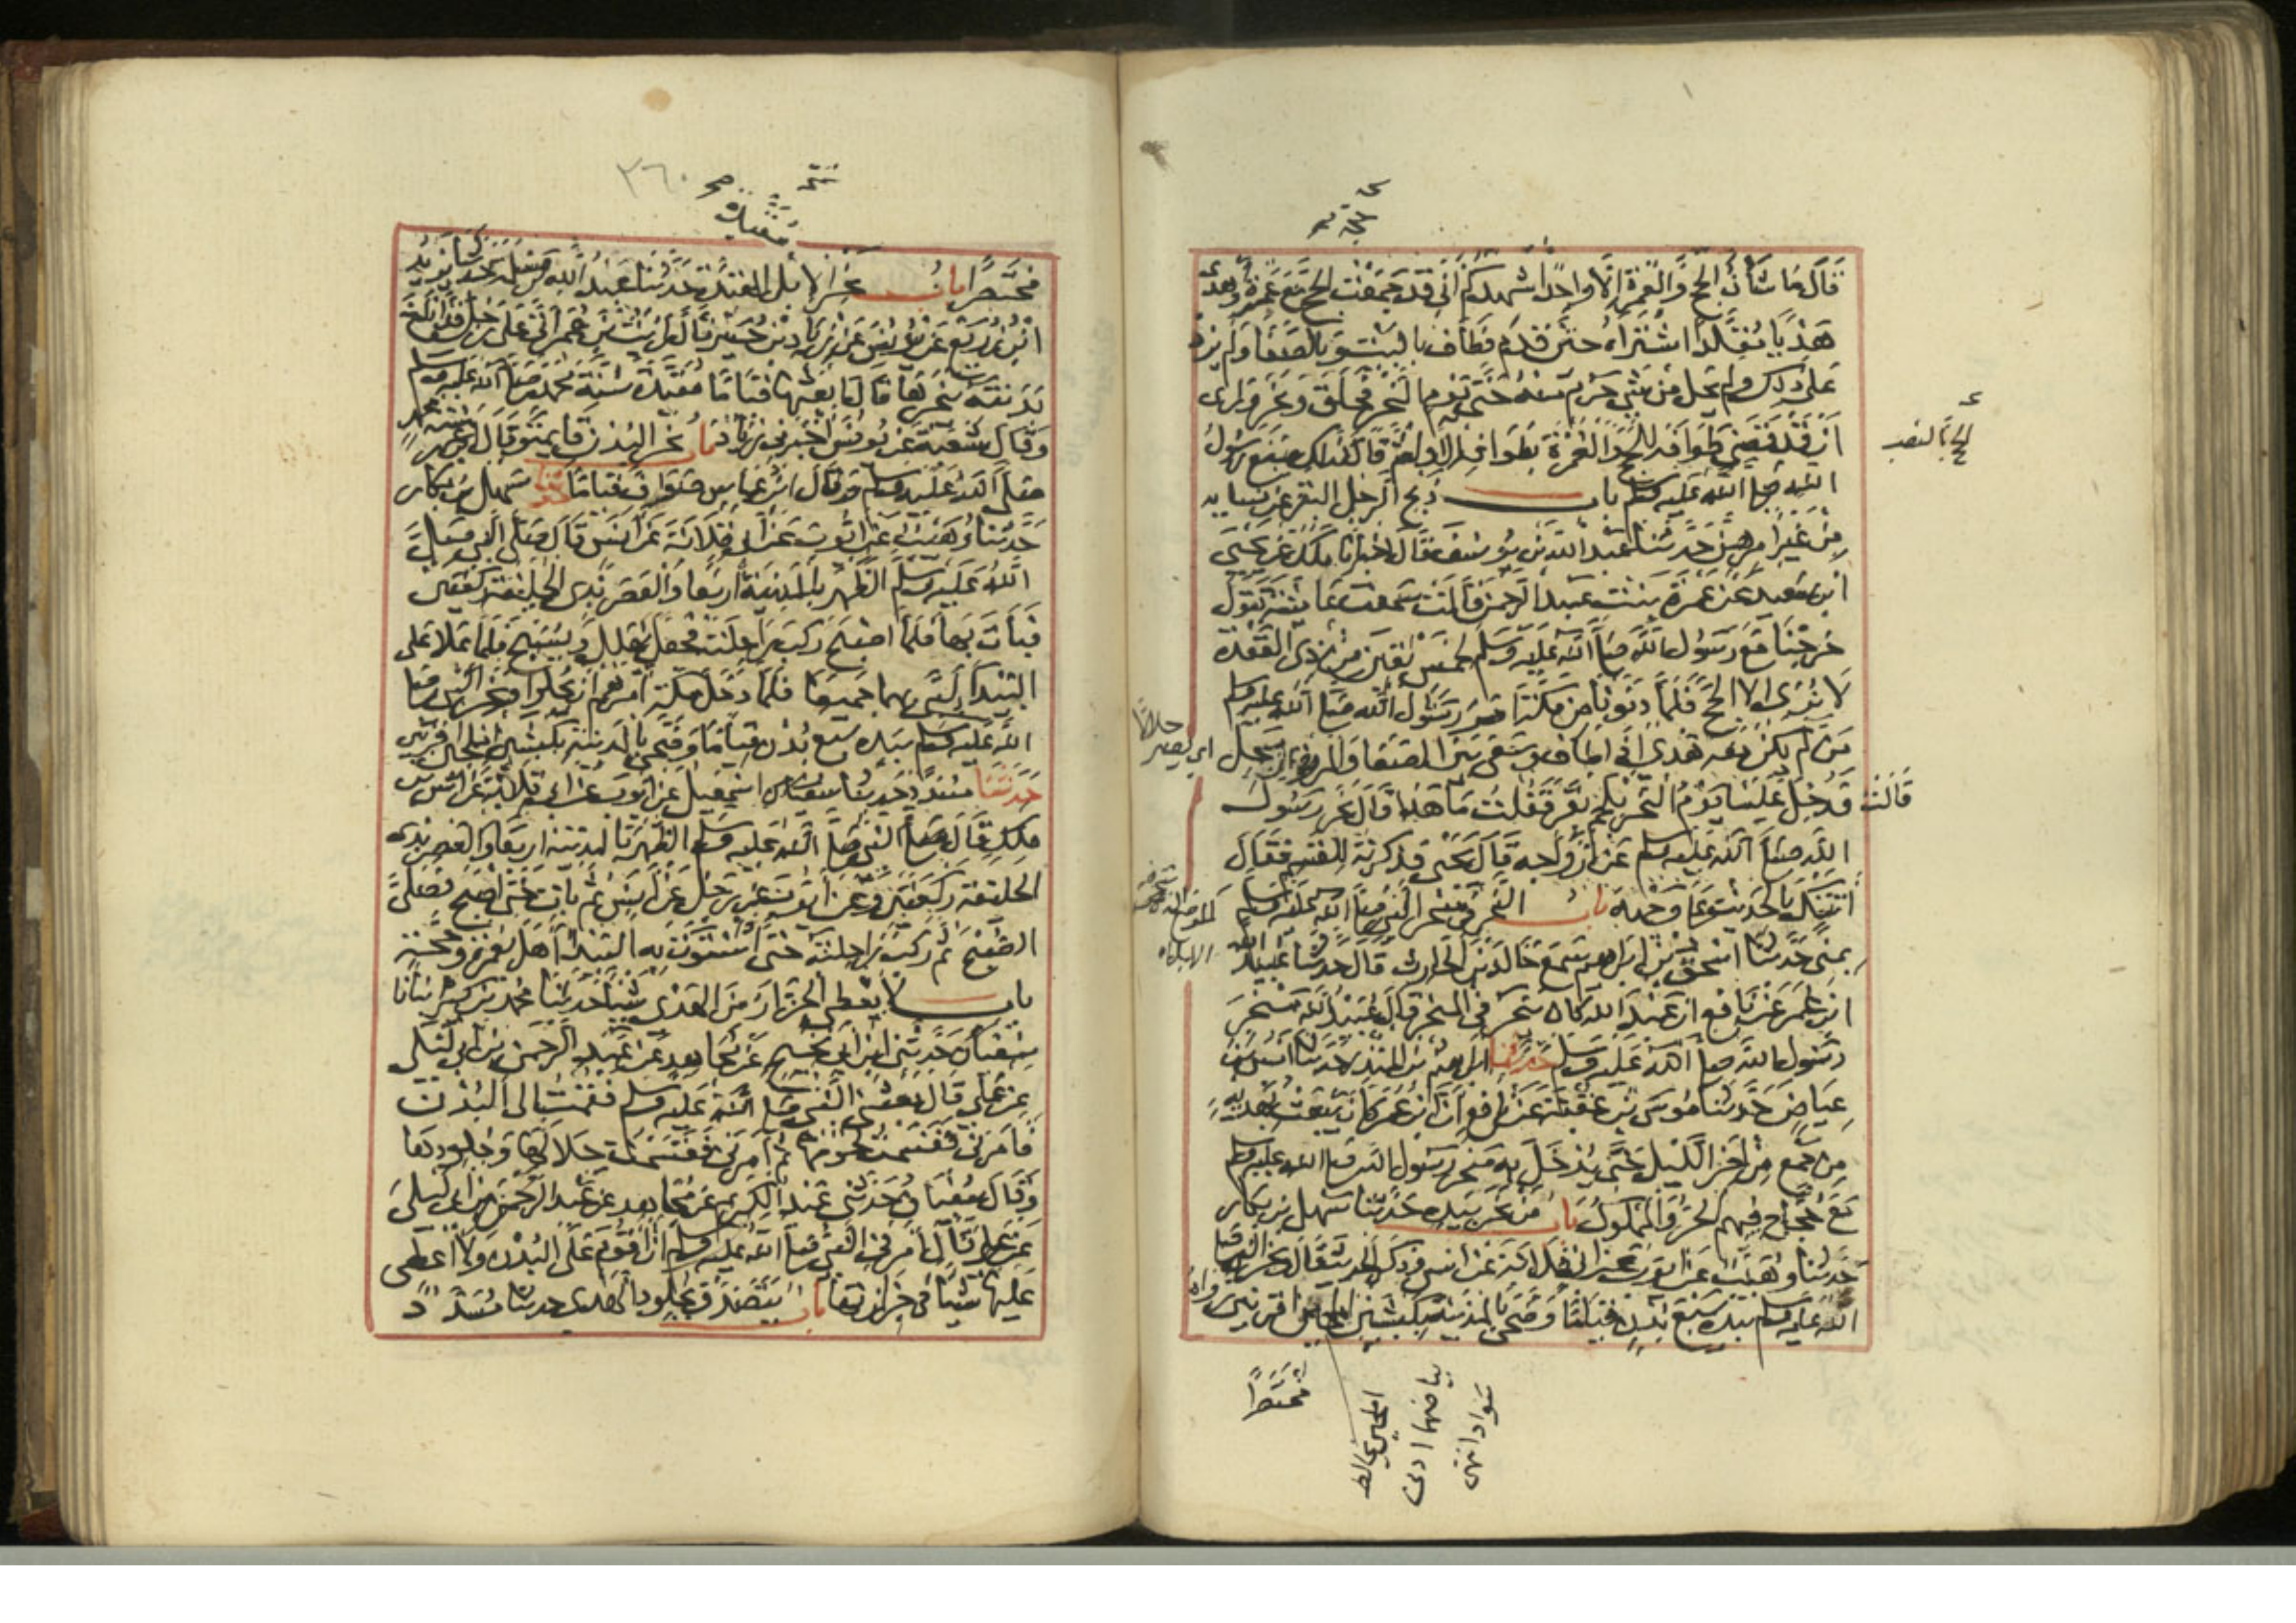 قال ما شأن الحج والعمرة إلا واحد أشهدكم أني قد جمعت الحج مع عمرة وأهدى
هديا مقلدا اشتراه حتى قدم فطاف بالبيت وبالصفا ولم يزد
على ذلك ولم يحلل من شيء حرم منه حتى يوم النحر فحلق ونحر ورأى
أن قد قضى طوافه للحج والعمرة بطوافه الأول ثم قال كذلك صنع رسول
الله صلى الله عليه وسلم باب ذبح الرجل البقر عن نسائه
من غير أمرهن حدثنا عبد الله بن يوسف قال أخبرنا ملك عن يحيى
ابن سعيد عن عمرة بنت عبد الرحمن قالت سمعت عائشة تقول
خرجنا مع رسول الله صلى الله عليه وسلم لخمس بقين من ذي القعدة
لا نرى إلا الحج فلما دنونا من مكة أمر رسول الله صلى الله عليه وسلم
من لم يكن معه هدي إذا طاف وسعى بين الصفا والمروة أن يحل
قالت فدخل علينا يوم النحر بلحم بقر فقلت ما هذا قال نحر رسول
الله صلى الله عليه وسلم عن أزواجه قال يحيى فذكرته للقسم فقال
أتتك بالحديث على وجهه باب النحر في منحر النبي صلى الله عليه وسلم
بمنى حدثنا اسحق بن ابراهيم سمع خالد بن الحارث قال حدثنا عبيد الله
ابن عمر عن نافع أن عبد الله كان ينحر في المنحر قال عبيد الله منحر
رسول الله صلى الله عليه وسلم حدثنا ابراهيم بن المنذر حدثنا أنس بن
عياض حدثنا موسى بن عقبة عن نافع أن ابن عمر كان يبعث بهديه
من جمع من آخر الليل حتى يدخل به منحر رسول الله صلى الله عليه وسلم
مع حجاج فيهم الحر والمملوك باب من نحر بيده حدثنا سهل بن بكار
حدثنا وهيب عن أيوب عن أبي قلابة عن أنس وذكر الحديث قال ونحر النبي صلى
الله عليه وسلم بيده سبع بدن قياما وضحى بالمدينة كبشين أملحين أقرنين
مختصرا
٣٦٠
مقيدة
مختصرا باب نحر الإبل المقيدة حدثنا عبد الله بن مسلمة حدثنا يزيد
ابن زريع عن يونس عن زياد بن جبير قال رأيت ابن عمر أتى على رجل قد أناخ
بدنته ينحرها قال ابعثها قياما مقيدة سنة محمد صلى الله عليه وسلم
وقال شعبة عن يونس أخبرني زياد باب نحر البدن قايمة وقال ابن عمر سنة محمد
صلى الله عليه وسلم وقال ابن عباس صواف قياما حدثنا سهل بن بكار
حدثنا وهيب عن أيوب عن أبي قلابة عن أنس قال صلى النبي صلى
الله عليه وسلم الظهر بالمدينة أربعا والعصر بذي الحليفة ركعتين
فبات بها فلما أصبح ركب راحلته فجعل يهلل ويسبح فلما علا على
البيداء لبى بهما جميعا فلما دخل مكة أمرهم أن يحلوا ونحر النبي صلى
الله عليه وسلم بيده سبع بدن قياما وضحى بالمدينة كبشين أملحين أقرنين
حدثنا مسدد حدثنا اسمعيل عن أيوب عن أبي قلابة عن أنس بن
ملك قال صلى النبي صلى الله عليه وسلم الظهر بالمدينة أربعا والعصر بذي
الحليفة ركعتين وعن أيوب عن رجل عن أنس ثم بات حتى أصبح فصلى
الصبح ثم ركب راحلته حتى استوت به البيداء أهل بعمرة وحجة
باب لا يعطي الجزار من الهدي شيئا حدثنا محمد بن كثير أنبأنا
سفيان حدثني ابن أبي نجيح عن مجاهد عن عبد الرحمن بن أبي ليلى
عن علي قال بعثني النبي صلى الله عليه وسلم فقمت إلى البدن
فأمرني فقسمت لحومها ثم أمرني فقسمت جلالها وجلودها
وقال سفيان وحدثني عبد الكريم عن مجاهد عن عبد الرحمن بن أبي ليلى
عن علي قال أمرني النبي صلى الله عليه وسلم أن أقوم على البدن ولا أعطي
عليها شيئا في جزارتها باب يتصدق بجلود الهدي حدثنا مسدد